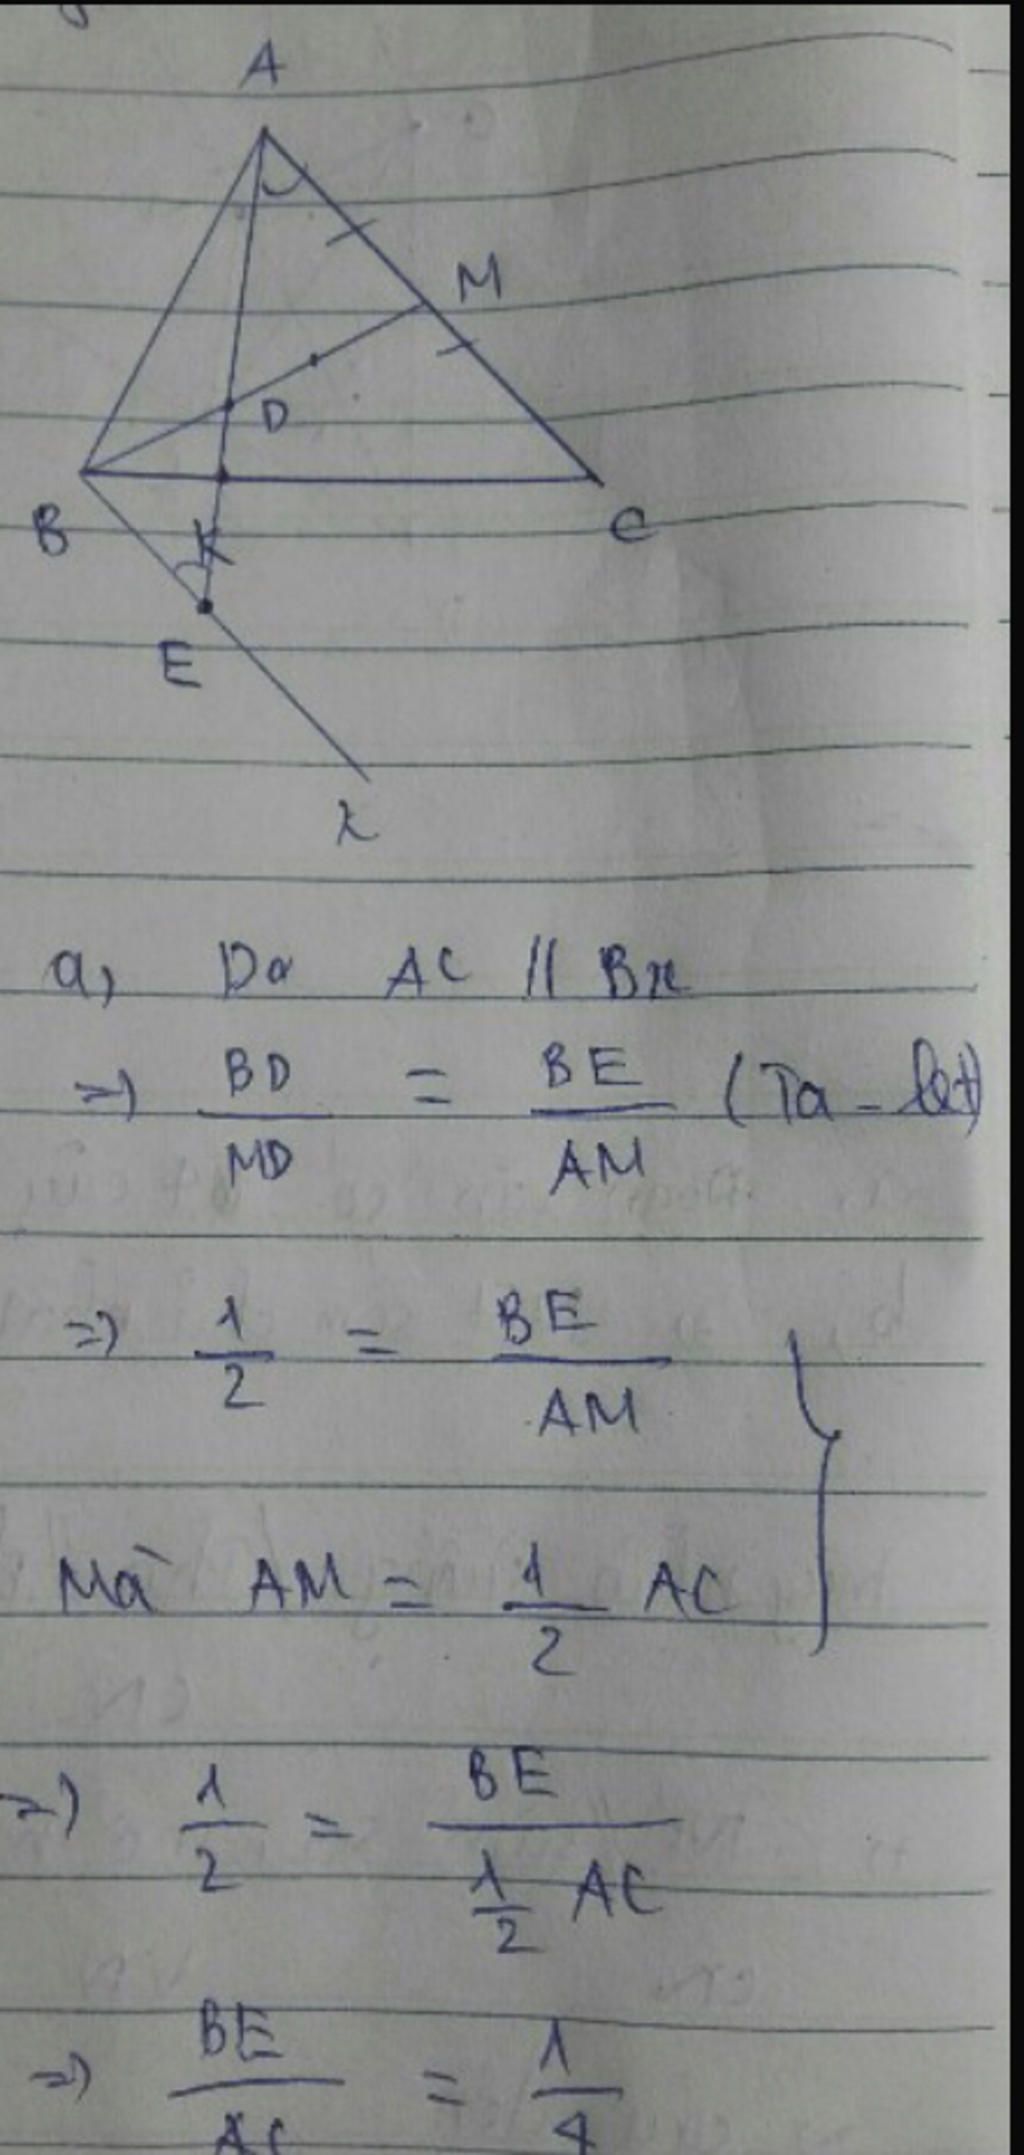 A
M
D
B
C
K
E
x
a, Do AC // Bx
=> BD/MD = BE/AM (Ta-let)
=> 1/2 = BE/AM
Mà AM = 1/2 AC
=> 1/2 = BE/(1/2 AC)
=> BE/AC = 1/4